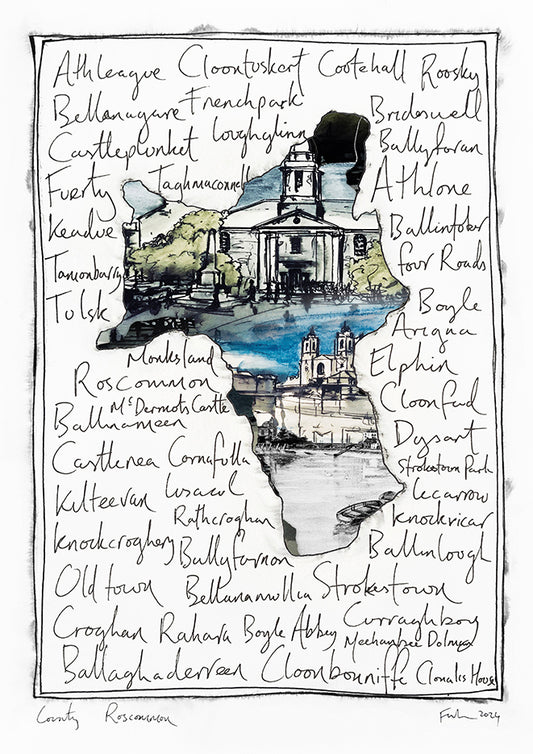 Athleague Cloontuskert Cootehall Roosky
Bellanagare Frenchpark Brideswell
Castleplunket Loughglinn Ballyforan
Fuerty Taghmaconnell Athlone
Keadue Ballintober
Tarmonbarry Four Roads
Tulsk Boyle
Arigna
Monksland Elphin
Roscommon Cloonfad
Ballinameen McDermots Castle
Dysart
Castlerea Cornafulla Strokestown Park
Kilteevan Lisacul Lecarrow
Rathcroghan Knockvicar
Knockcroghery Ballyfarnon Ballinlough
Old town Bellanamullia Strokestown
Croghan Rahara Boyle Abbey Curraghboy
Meehambee Dolmen
Ballaghaderreen Cloonbonniffe Clonalis House
County Roscommon 2024